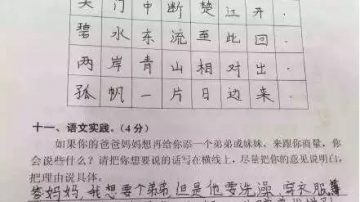 天门中断楚江开.
碧水东流至此回.
两岸青山相对出.
孤帆一片日边来.
十一、语文实践。(4分)
如果你的爸爸妈妈想再给你添一个弟弟或妹妹,来跟你商量,你
会说些什么?请把你想要说的话写在横线上,尽量把你的意见说明白,
把理由说具体。
答妈妈,我想要个弟弟,但是他要洗澡,穿衣服